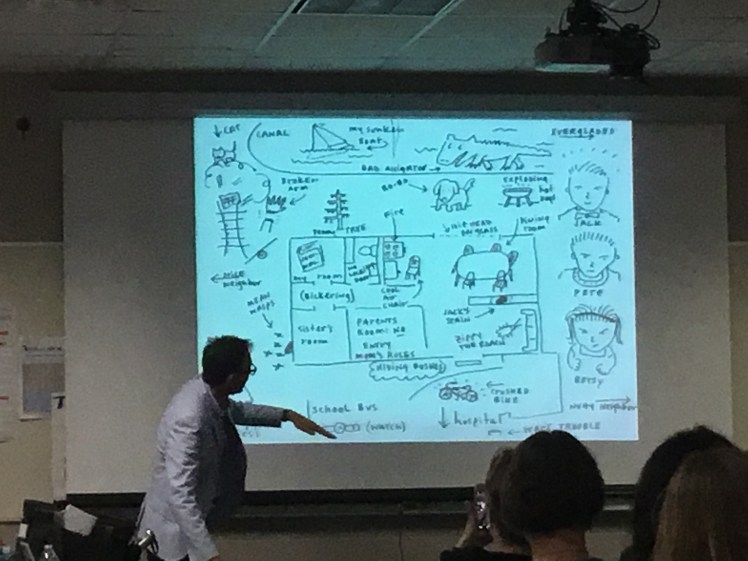 CAT
CANAL
my sunken
boat
EVERGLADES
BAD ALLIGATOR
BROKEN
arm
BO-BO
EXPLODING
hot
JACK
TREE
FIRE
Dining
room
my room
NICE
neighbor
(Bickering)
COOL
AIR
CHAIR
PETE
MEAN
WASPS
SISTER'S
room
PARENTS
ROOM: NO
ENTRY
MOM'S RULES
JACK'S
ZIPPY
THE ROACH
HIDING BUSHES
BETSY
CRUSHED
BIKE
SCHOOL BUS
hospital
NOSY neighbor
(WATCH)